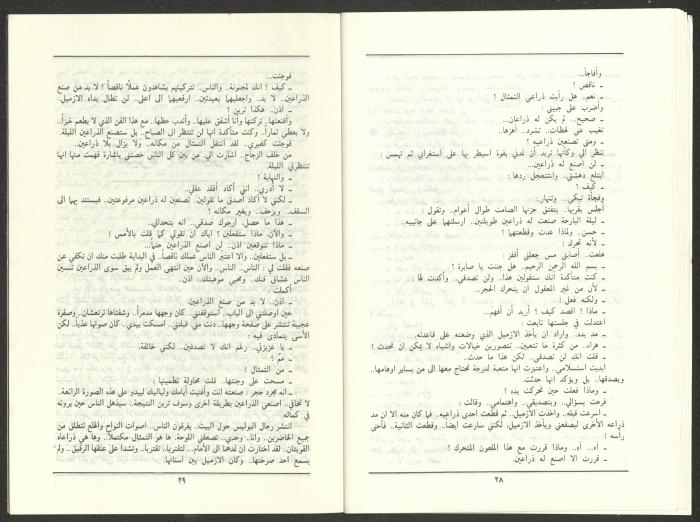 وأفاجأ...
ـ ناقص !
ـ نعم. هل رأيت ذراعي التمثال ؟
وأضرب على جبيني :
ـ صحيح... لم يكن له ذراعان...
تغيب عني لحظات. تشرد.. أهزها..
ـ ومتى تصنعين ذراعيه !
تنظر الي وكأنها تريد أن تمدني بقوة أسيطر بها على أستغرابي ثم تهمس :
ـ لن أصنع له ذراعين...
ابتلع دهشتي. واستعجل ردها :
ـ كيف ؟
وفجأة تبكي.. وتنهار.
أجلس بقربها.. يتفتق حزنها الصامت طوال أعوام.. وتقول :
ـ ليلة البارحة صنعت له ذراعين طويلتين.. أرسلتهما على جانبيه..
ـ حسن. ولماذا عدت وقطعتهما ؟
ـ لأنه تحرك !
هلعت. أصابني مس جعلني أقفز :
ـ بسم الله الرحمن الرحيم. هل جننت يا صابرة ؟
ـ كنت متأكدة انك ستقولين هذا.. ولن تصدقي.. وأكدت لها :
ـ لأن من غير المعقول ان يتحرك الحجر...
ـ ولكنه فعل !
ـ ماذا ! اقصد كيف ؟ أريد أن أفهم...
اعتدلت في جلستها تابعت :
ـ مد يده.. وأراد ان يأخذ الازميل الذي وضعته على قاعدته.
ـ هراء.. من كثرة ما تتعبين. تتصورين خيالات واشياء لا يمكن ان تحدث !
ـ قلت انك لن تصدقي.. لكن هذا ما حدث..
ابديت استسلامي.. واعتبرت انها متعبة لدرجة تحتاج معها الى من يساير اوهامها..
ويصدقها.. بل ويؤكد انها حدثت.
ـ وماذا فعلت حين تحركت يده ؟
فرحت بسؤالي.. وبتصديقي.. واهتمامي.. وقالت :
ـ اسرعت قبله.. واخذت الازميل.. ثم قطعت احدى ذراعيه.. فما كان منه الا ان مد
ذراعه الأخرى ليصفعني ويأخذ الازميل، لكنني سارعت أيضاً.. وقطعت الثانية.. فأحنى
رأسه !
ـ أه.. أه.. وماذا قررت مع هذا الملعون المتحرك ؟
ـ قررت الا اصنع له ذراعين.
٢٨
فوجئت...
ـ كيف ! انك لمجنونة.. والناس.. تتركينهم يشاهدون عملاً ناقصاً ! لا بد من صنع
الذراعين.. لا بد. واجعليهما بعيدتين. ارفعيهما الى اعلى.. لن تطال يداه الازميل.
ـ اذن.. هكذا ترين ؟
وأقنعتها.. تركتها وأنا أشفق عليها.. وأندب حظها. مع هذا الفن الذي لا يطعم خبزاً.
ولا يعطي ثماراً.. وكنت متأكدة انها لن تنتظر الى الصباح.. بل ستصنع الذراعين الليلة.
فوجئت كغيري.. لقد انتقل التمثال من مكانه.. ولا يزال بلا ذراعين..
من خلف الزجاج.. اشارت الي من بين كل الناس خصتني باشارة فهمت منها انها
تنتظرني الليلة.
ـ والنهاية !
ـ لا أدري.. انني أكاد أفقد عقلي..
ـ لكنني لا أكاد أصدق ما تقولين. تصنعين له ذراعين مرفوعتين. فيستند بهما الى
السقف.. ويزحف.. ويغير مكانه ؟
ـ هذا ما حصل. أرجوك صدقي.. انه يتحداني.
ـ والآن، ماذا ستفعلين ؟ اياك أن تقولي كما قلت بالأمس !
ـ ماذا تتوقعين اذن.. لن أصنع الذراعين حتماً..
ـ بل ستفعلين.. والا اعتبر الناس عملك ناقصاً.. في البداية طلبت منك ان تكفي عن
صنعه فقلت لي : الناس. الناس.. والآن حين انتهى العمل ولم يبق سوى الذراعين تنسين
الناس عشاق فنك.. ومحبي موهبتك.. اذن..
أكملت :
ـ اذن.. لا بد من صنع الذراعين.
حين اوصلتني الى الباب.. أستوقفتني.. كان وجهها مدمراً.. وشفتاها ترتعشان.. وصفرة
عجيبة تنتشر على صفحة وجهها.. دنت مني قبلتني.. امسكت بيدي.. كان صوتها عذباً، لكن
الأسى يتمادى فيه :
ـ يا عزيزتي. رغم انك لا تصدقين.. لكنني خائفة.
ـ ممّ ؟
ـ من التمثال !
ـ مسحت على وجنتها.. قلت محاولة تطمينها :
ـ انه مجرد حجر : صنعته انت وأفنيت أيامك ولياليك ليبدو على هذه الصورة الرائعة..
لا تخافي.. اصنعي الذراعين بطريقة أخرى وسوف ترين النتيجة.. سيذهل الناس حين يرونه
في كماله.
انتشر رجال البوليس حول البيت. يفرقون الناس.. اصوات النواح والهلع تنطلق من
جميع الحاضرين.. وانا.. وحدي.. تصفعني اللوحة. ها هو التمثال مكتملاً.. وها هي ذراعاه
القويتان.. لقد اختارت ان تمدهما الى الأمام... لتقتربا، تقتربا.. وتشدا على عنقها الرقيق.. ولم
يسمع احد صرختها.. وكان الازميل بين أسنانها.
٢٩